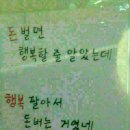 돈벌면
행복할 줄 알았는데
행복 팔아서
돈버는 거였네